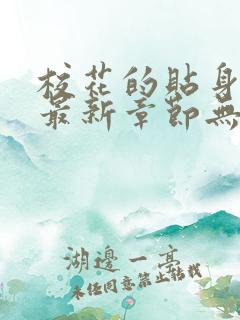 校花的貼身
最新章節無
湖邊一亭
未經同意禁止轉載